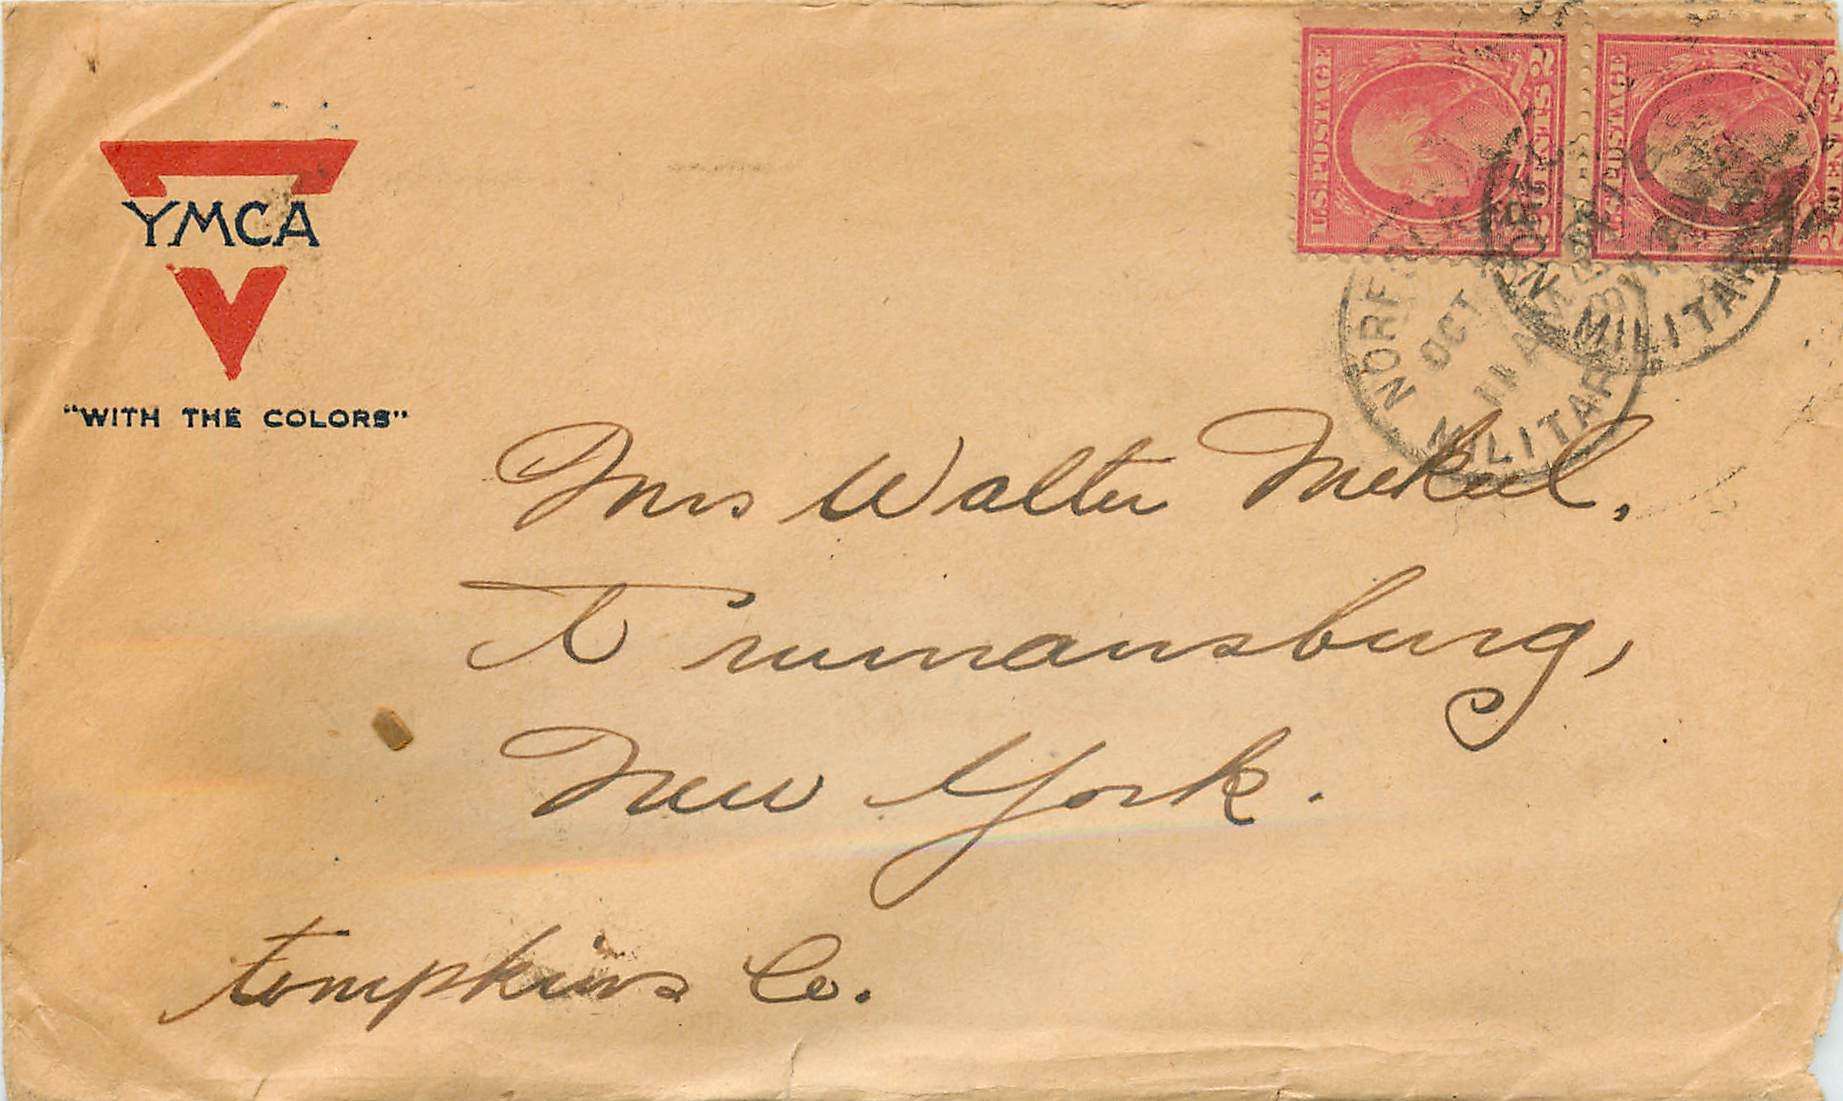 YMCA
"WITH THE COLORS"
U.S. POSTAGE
2 CENTS 2
U.S. POSTAGE
2 CENTS 2
NORF
OCT
11 AM
MILITAR
NORF
MILITAR
Mrs Walter Mekeel,
Trumansburg,
New York.
Tompkins Co.